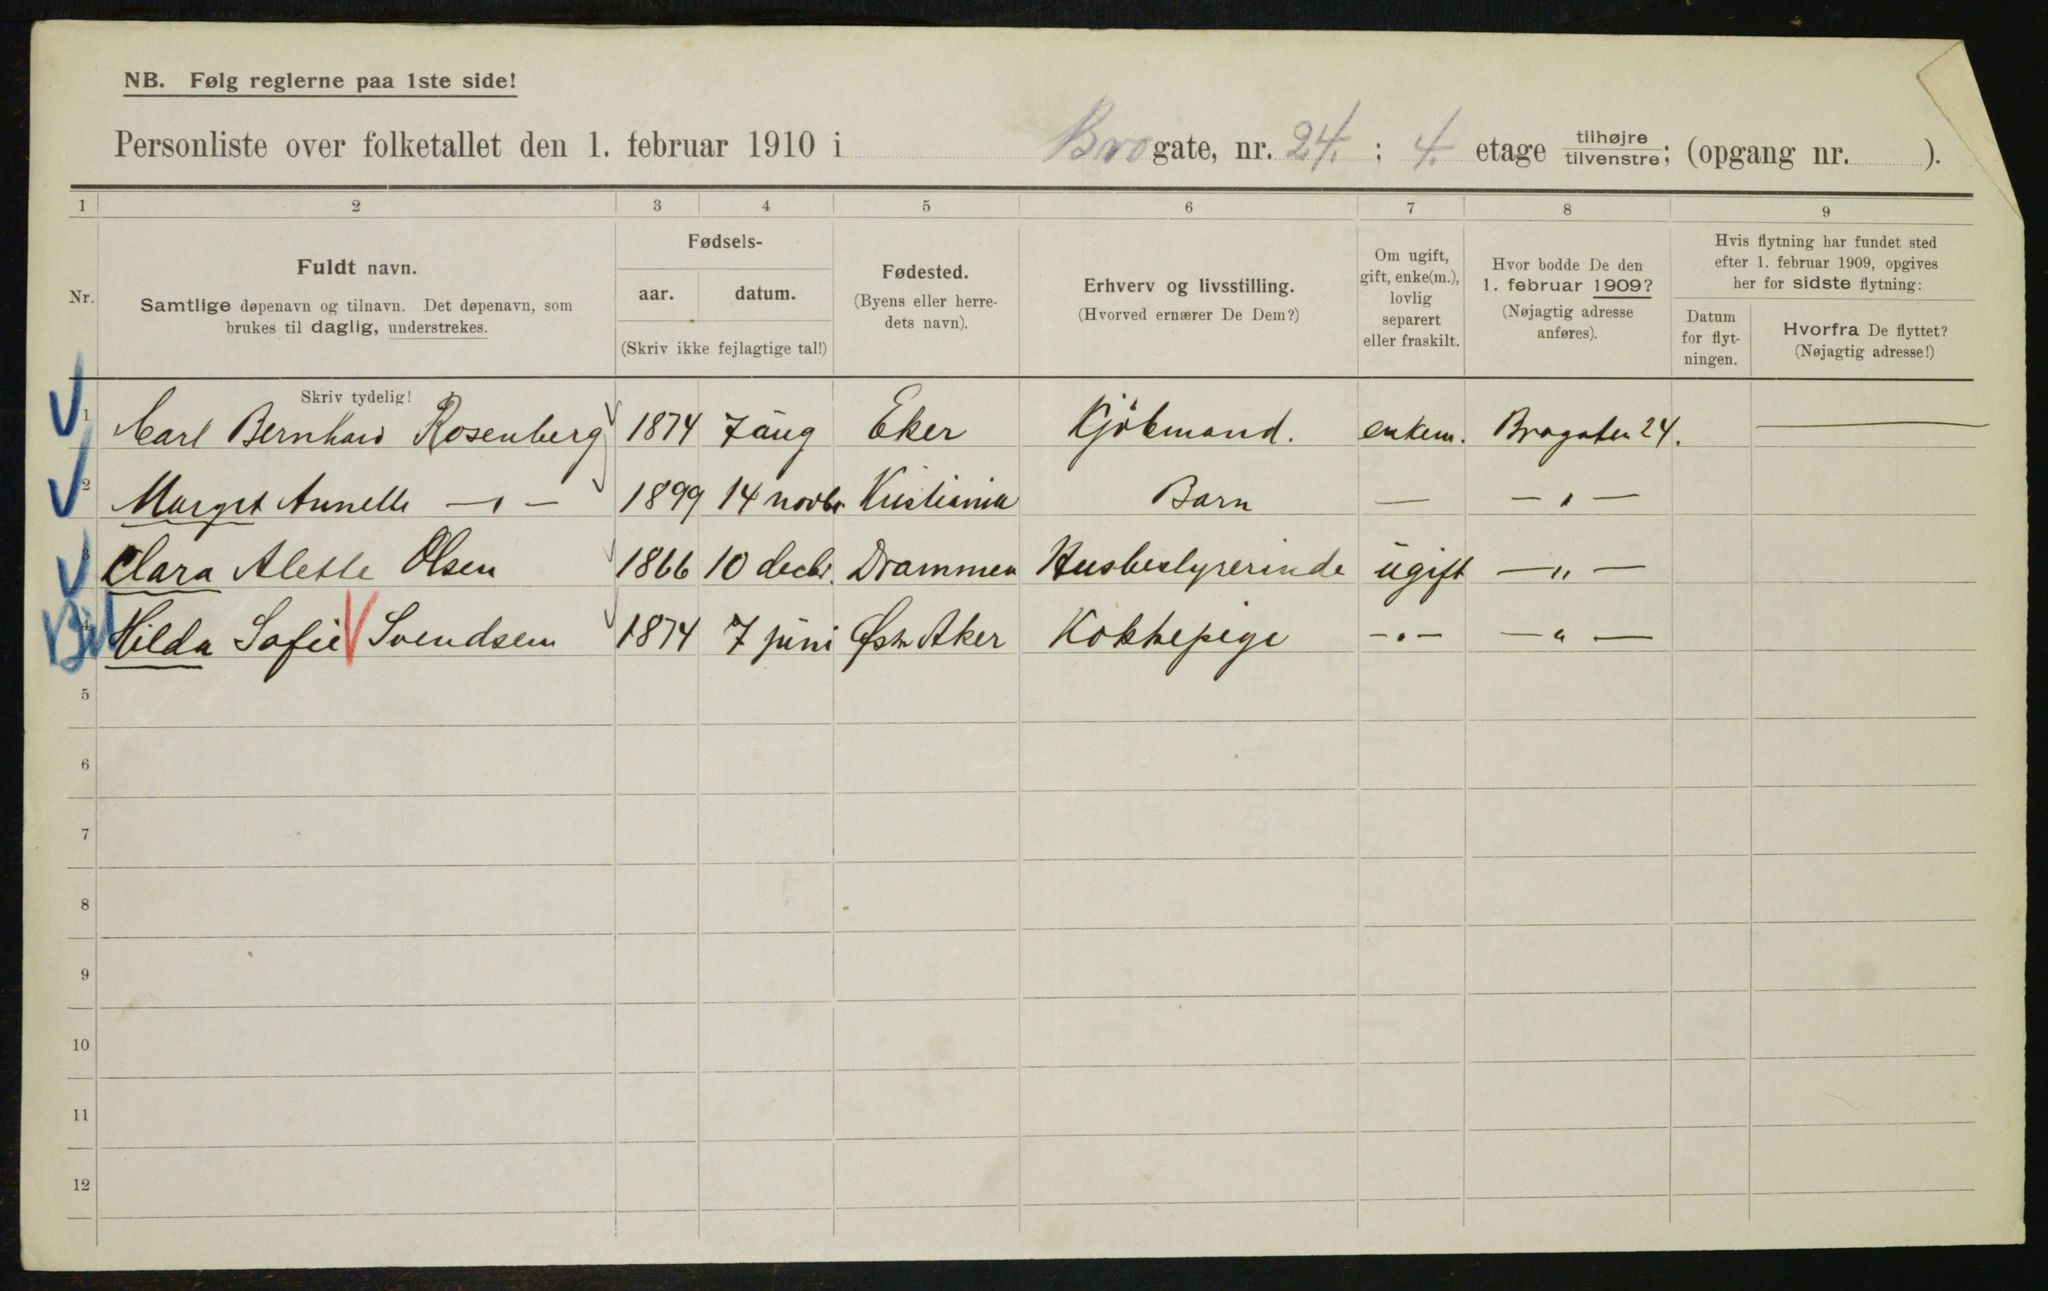 NB. Følg reglerne paa 1ste side!
Personliste over folketallet den 1. februar 1910 i Brogate, nr. 24. ; 4. etage tilhøjre / tilvenstre; (opgang nr. ).
1 2 3 4 5 6 7 8 9
Nr.
Fuldt navn.
Samtlige døpenavn og tilnavn. Det døpenavn, som
brukes til daglig, understrekes.
Fødsels-
aar. datum.
(Skriv ikke fejlagtige tal!)
Fødested.
(Byens eller herre-
dets navn).
Erhverv og livsstilling.
(Hvorved ernærer De Dem?)
Om ugift,
gift, enke(m.),
lovlig
separert
eller fraskilt.
Hvor bodde De den
1. februar 1909?
(Nøjagtig adresse
anføres).
Hvis flytning har fundet sted
efter 1. februar 1909, opgives
her for sidste flytning:
Datum
for flyt-
ningen.
Hvorfra De flyttet?
(Nøjagtig adresse!)
Skriv tydelig!
1 Carl Bernhard Rosenberg 1874 7 aug Eker Kjöbmand. enkem. Brogaten 24. —
2 Margit Annette —„— 1899 14 novbr Kristiania Barn — —„—
3 Clara Alette Olsen 1866 10 decbr. Drammen Husbestyrerinde ugift —„—
4 Hilda Sofie Svendsen 1874 7 juni Østr Aker Kokkepige —„— —„—
5
6
7
8
9
10
11
12